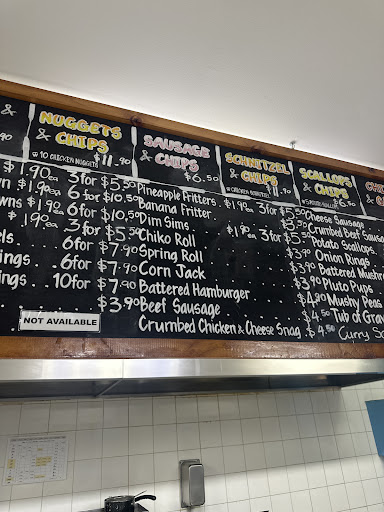 &
NUGGETS
& CHIPS
10 CHICKEN NUGGETS $11.90
SAUSAGE
& CHIPS
$6.50
SCHNITZEL
& CHIPS
CHICKEN
$11.90
SCALLOPS
& CHIPS
$6.50
& CHIPS
$1.90ea 3 for $5.50
Pineapple Fritters. $1.90ea 3 for $5.50
Cheese Sausage
6 for $10.50
Banana Fritter
Crumbed Beef Sausage
wns $1.90ea 6 for $10.50
Dim Sims
$1.90ea 3 for $5.50
Potato Scallops
$1.90ea 3 for $5.50
Chiko Roll
$3.90
Onion Rings
6 for $7.90
Spring Roll
$3.90
Battered Mushy
ings 6 for $7.90
Corn Jack
$3.90
Pluto Pups
ings 10 for $7.90
Battered Hamburger
Mushy Peas
NOT AVAILABLE
$3.90
Beef Sausage
$4.50
Tub of Gra
Crumbed Chicken & Cheese Snag.
$4.50
Curry